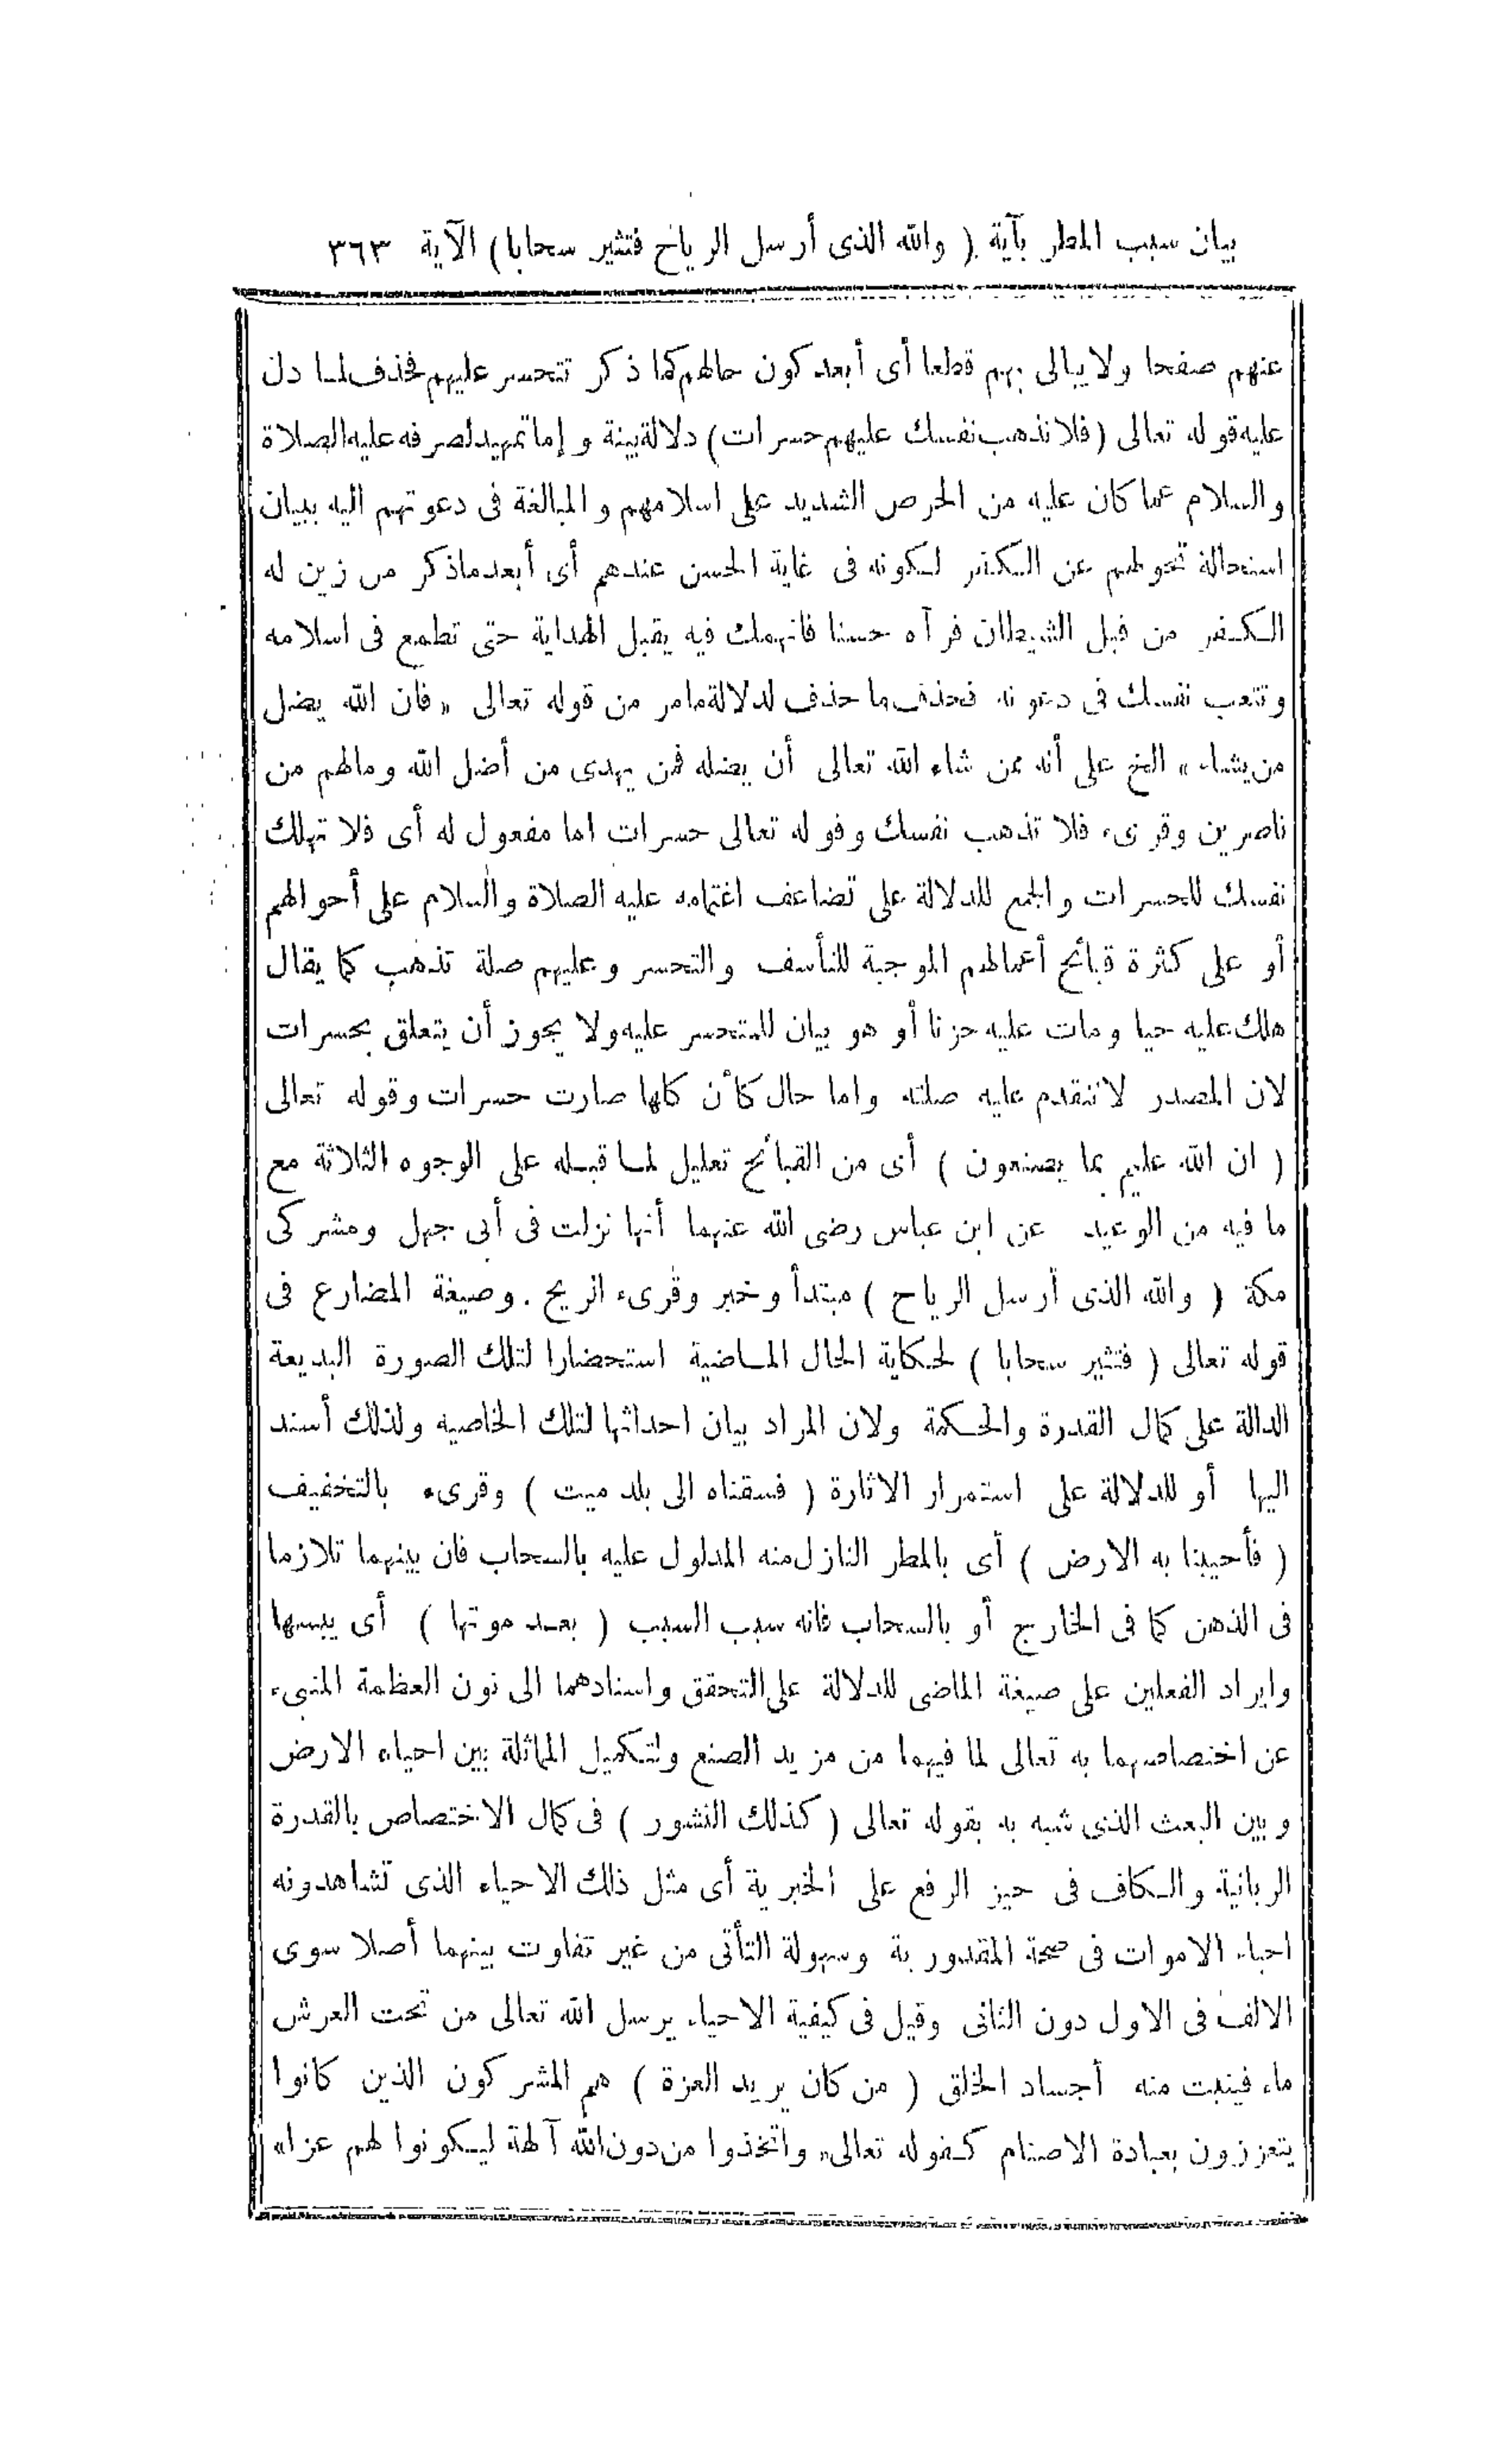 بيان سبب المطر بآية ( والله الذى أرسل الرياح فتثير سحابا ) الآية ٣٦٣
عنهم صفحا ولا يبالى بهم قطعا أى أبعد كون حالهم كما ذكر تتحسر عليهم فحذف لما دل
عليه قوله تعالى (فلا تذهب نفسك عليهم حسرات) دلالة بينة وإما تمهيد لصرفه عليه الصلاة
والسلام عما كان عليه من الحرص الشديد على اسلامهم والمبالغة فى دعوتهم اليه ببيان
استحالة تحولهم عن الكفر لكونه فى غاية الحسن عندهم أى أبعد ماذكر من زين له
الكفر من قبل الشيطان فرآه حسنا فانهمك فيه يقبل الهداية حتى تطمع فى اسلامه
وتتعب نفسك فى دعوته فحذف ما حذف لدلالة مامر من قوله تعالى «فان الله يضل
من يشاء» الخ على أنه ممن شاء الله تعالى أن يضله فمن يهدى من أضل الله ومالهم من
ناصرين وقرىء فلا تذهب نفسك وقوله تعالى حسرات اما مفعول له أى فلا تهلك
نفسك للحسرات والجمع للدلالة على تضاعف اغتمامه عليه الصلاة والسلام على أحوالهم
أو على كثرة قبائح أعمالهم الموجبة للتأسف والتحسر وعليهم صلة تذهب كما يقال
هلك عليه حبا ومات عليه حزنا أو هو بيان للمتحسر عليه ولا يجوز أن يتعلق بحسرات
لان المصدر لاتتقدم عليه صلته واما حال كأن كلها صارت حسرات وقوله تعالى
( ان الله عليم بما يصنعون ) أى من القبائح تعليل لما قبله على الوجوه الثلاثة مع
ما فيه من الوعيد عن ابن عباس رضى الله عنهما أنها نزلت فى أبى جهل ومشركى
مكة ( والله الذى أرسل الرياح ) مبتدأ وخبر وقرىء الريح . وصيغة المضارع فى
قوله تعالى ( فتثير سحابا ) لحكاية الحال الماضية استحضارا لتلك الصورة البديعة
الدالة على كمال القدرة والحكمة ولان المراد بيان احداثها لتلك الخاصيه ولذلك أسند
اليها أو للدلالة على استمرار الاثارة ( فسقناه الى بلد ميت ) وقرىء بالتخفيف
( فأحيينا به الارض ) أى بالمطر النازل منه المدلول عليه بالسحاب فان بينهما تلازما
فى الذهن كما فى الخارج أو بالسحاب فانه سبب السبب ( بعد موتها ) أى يبسها
وايراد الفعلين على صيغة الماضى للدلالة على التحقق واسنادهما الى نون العظمة المنبىء
عن اختصاصهما به تعالى لما فيهما من مزيد الصنع ولتكميل المماثلة بين احياء الارض
وبين البعث الذى شبه به بقوله تعالى ( كذلك النشور ) فى كمال الاختصاص بالقدرة
الربانية والكاف فى حيز الرفع على الخبرية أى مثل ذلك الاحياء الذى تشاهدونه
احياء الاموات فى صحة المقدورية وسهولة التأتى من غير تفاوت بينهما أصلا سوى
الالف فى الاول دون الثانى وقيل فى كيفية الاحياء يرسل الله تعالى من تحت العرش
ماء فينبت منه أجساد الخلق ( من كان يريد العزة ) هم المشركون الذين كانوا
يتعززون بعبادة الاصنام كقوله تعالى «واتخذوا من دون الله آلهة ليكونوا لهم عزا»